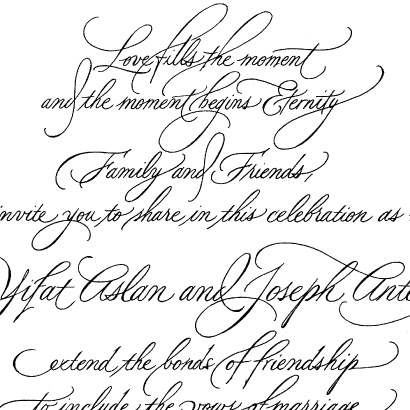 Love fills the moment
and the moment begins Eternity
Family and Friends,
invite you to share in this celebration as
Yifat Aslan and Joseph Anto
extend the bonds of friendship
to include the vows of marriage